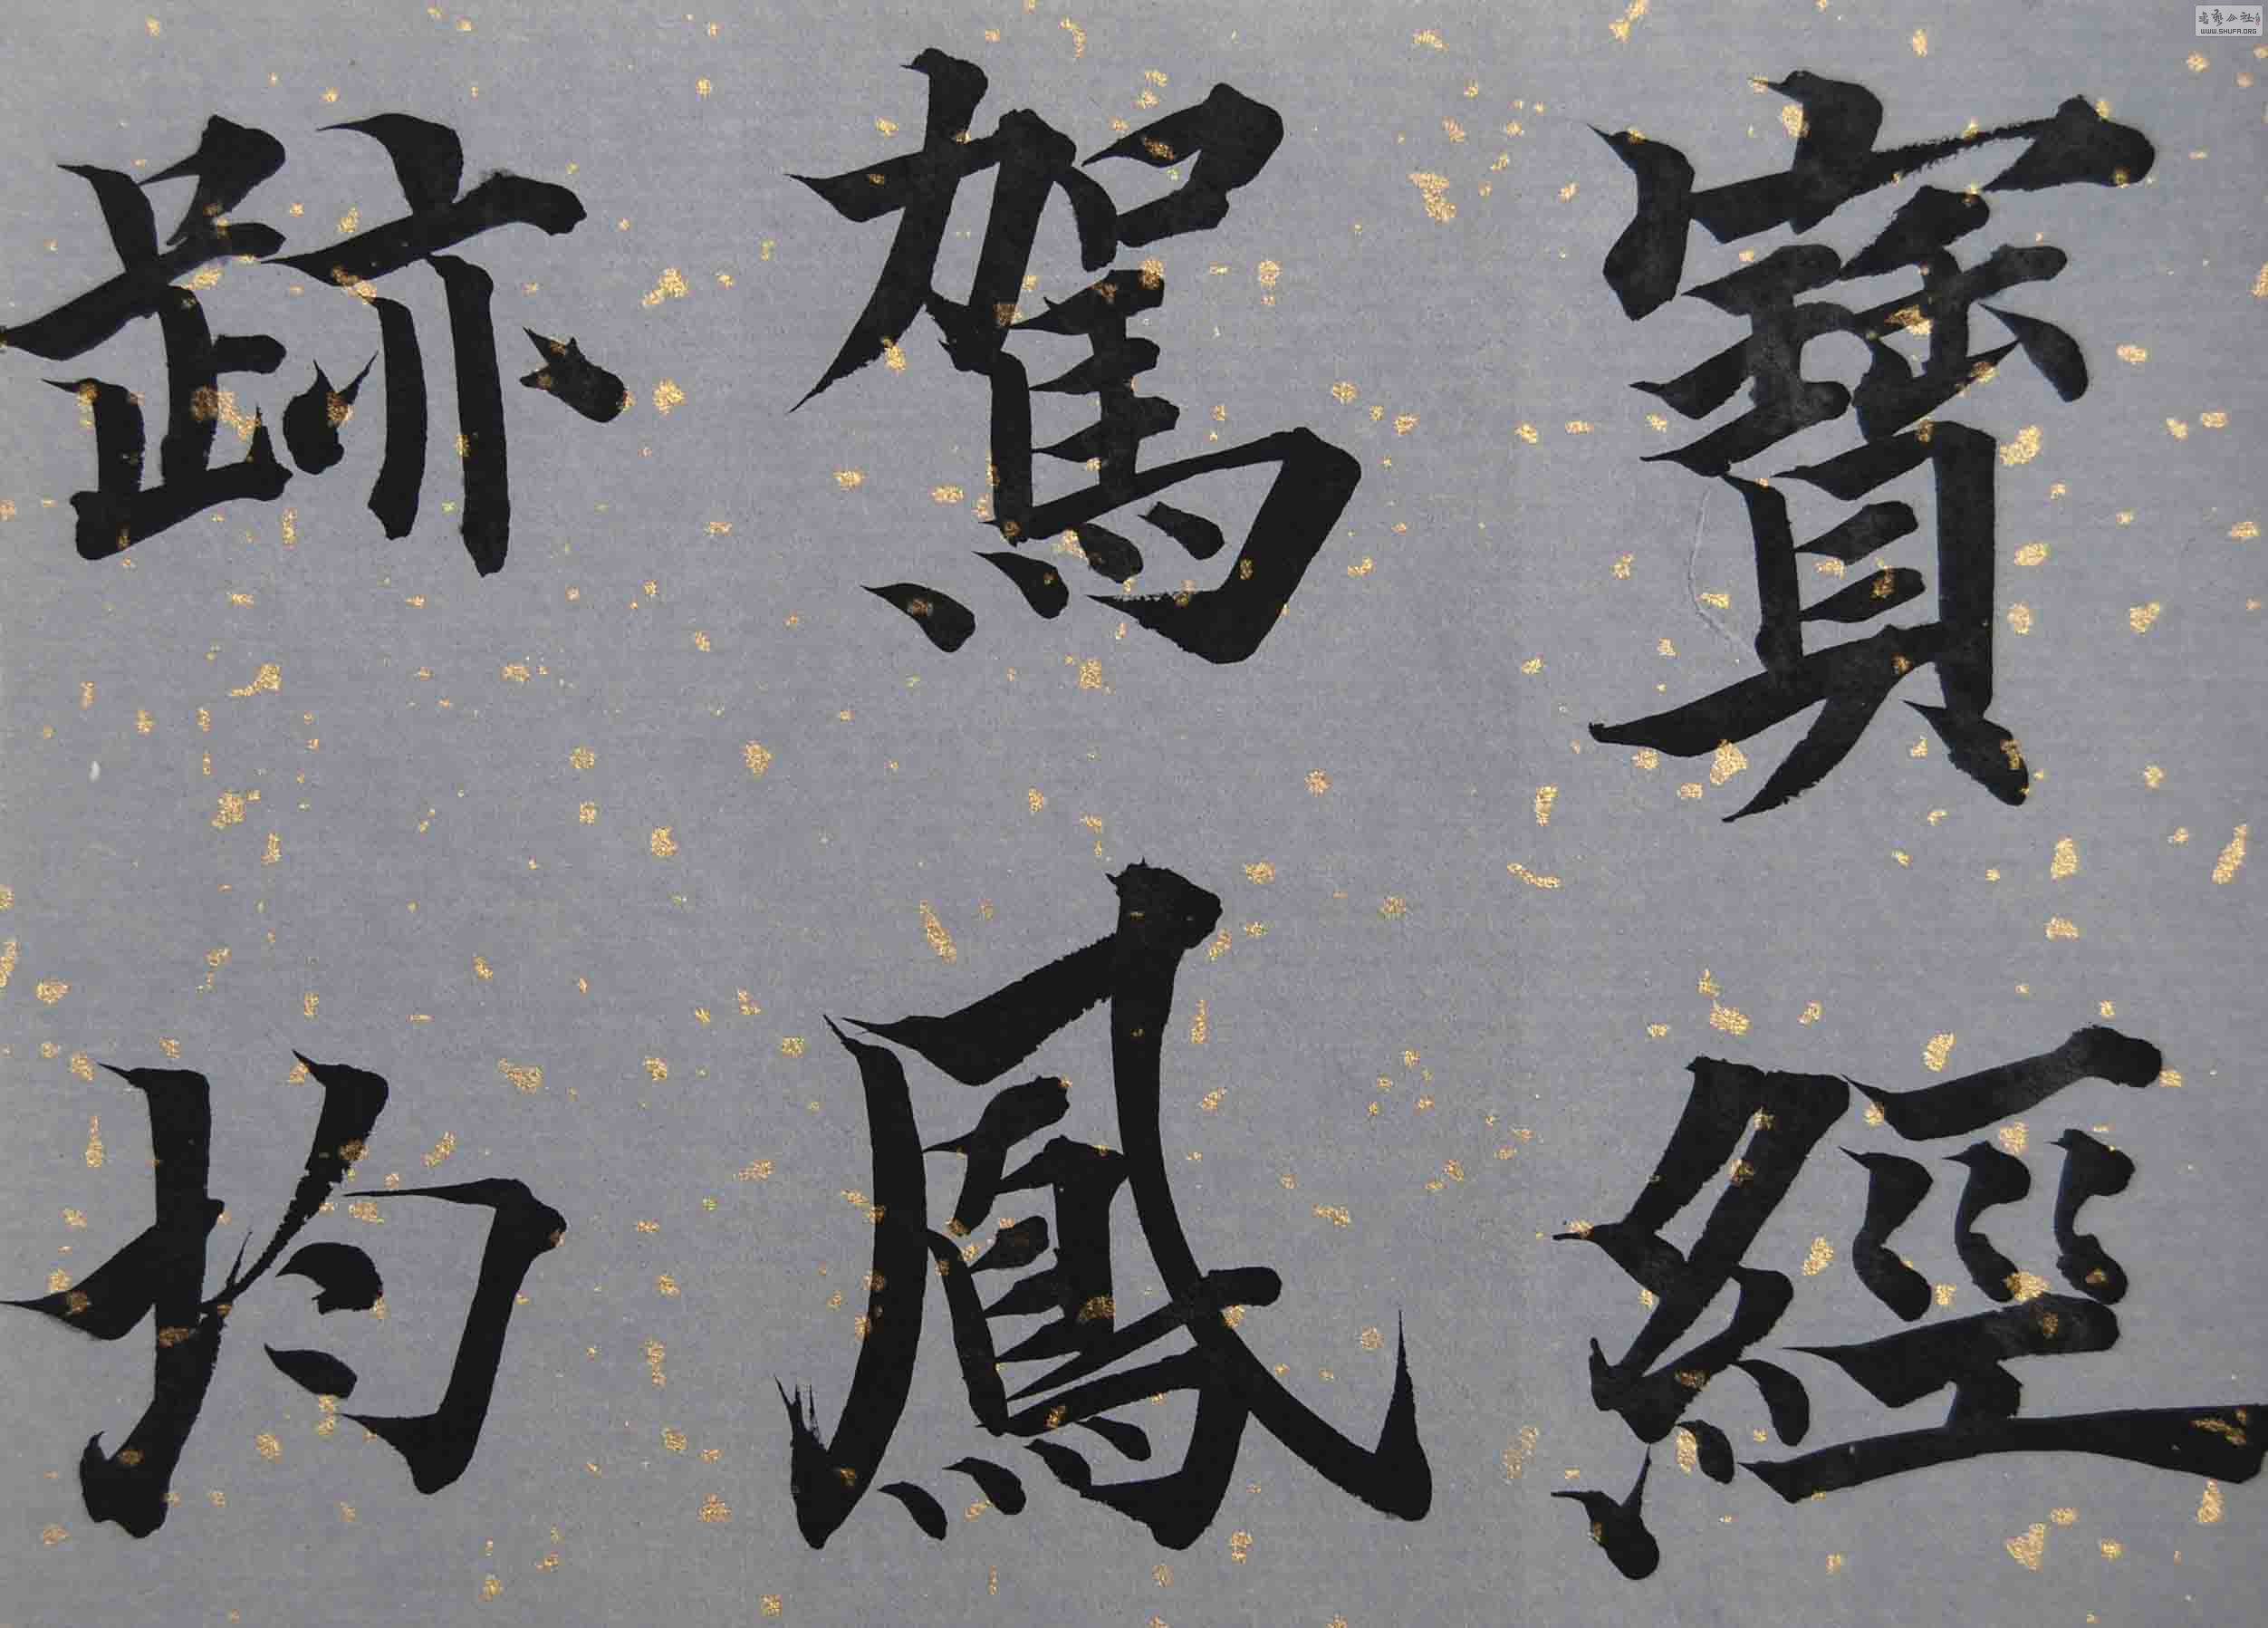 寶經
駕鳳
跡
書藝公社
WWW.SHUFA.ORG